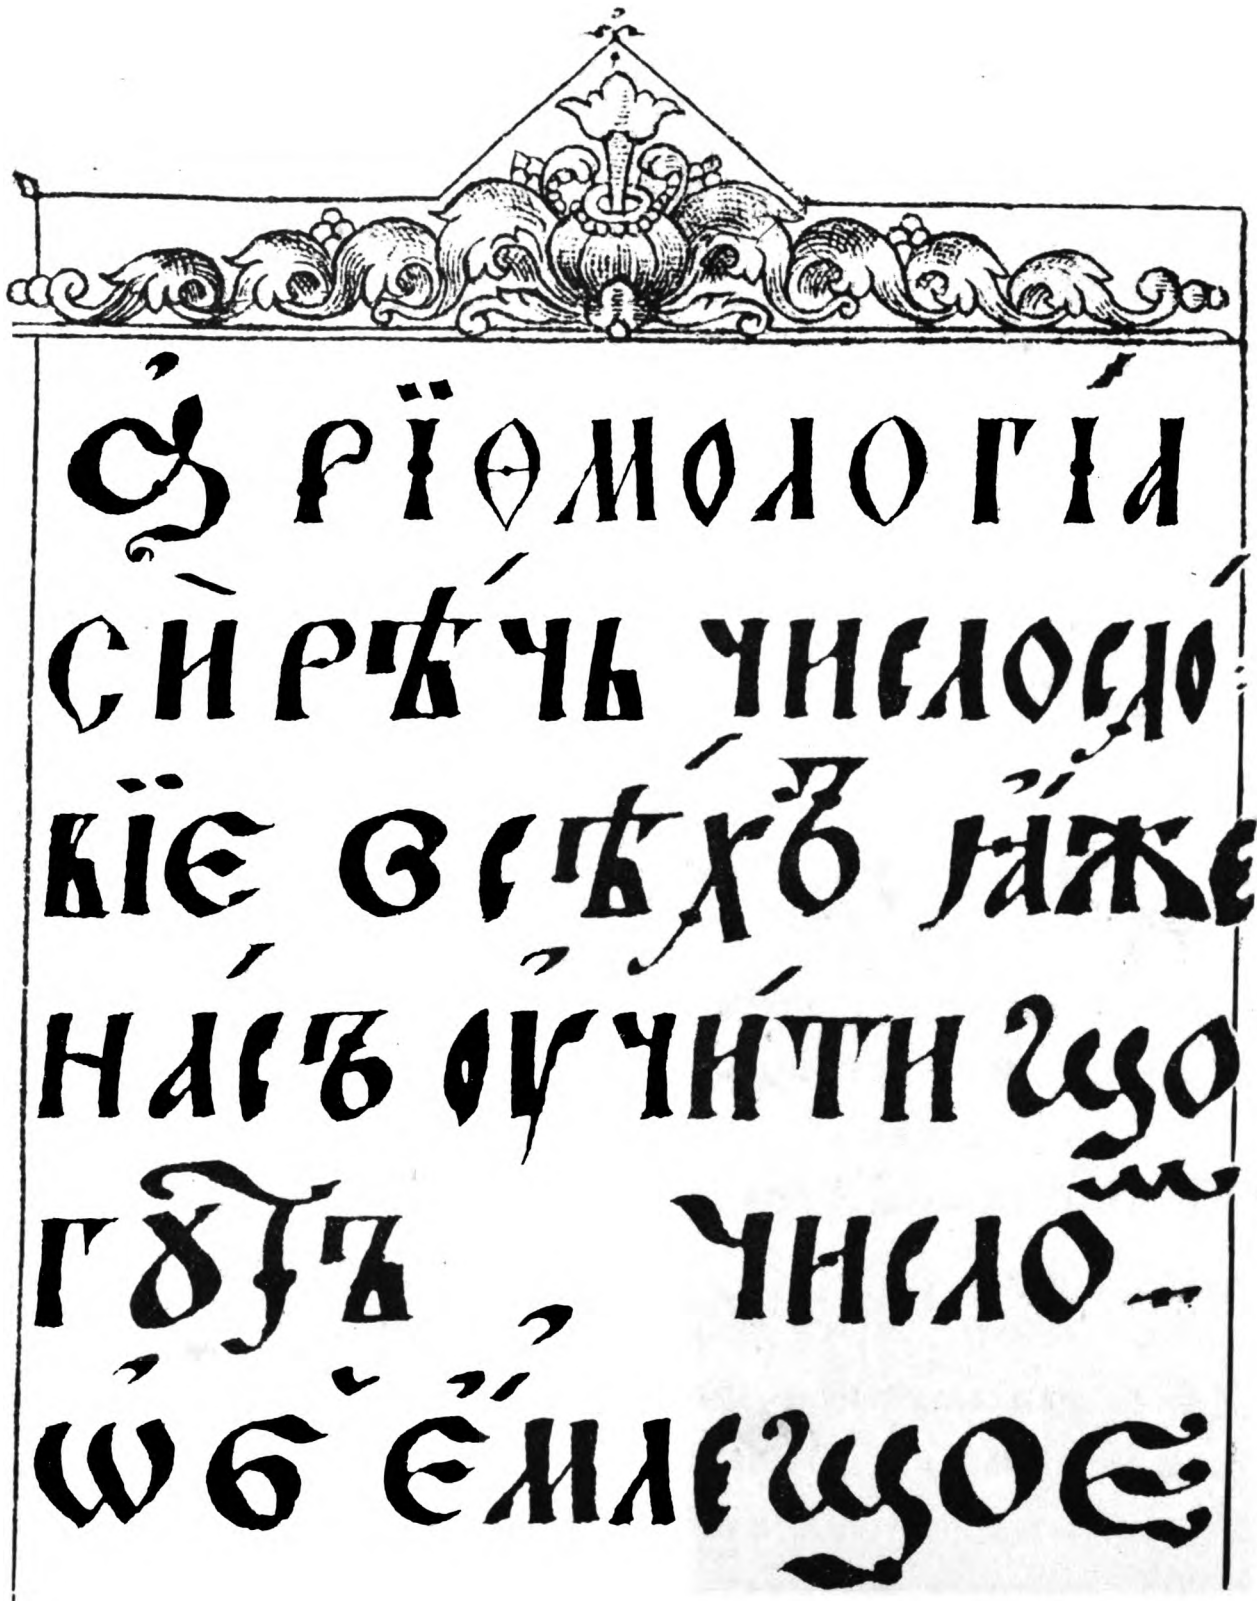 А҆рїѳмологі́а
сѝрѣ́чь числосло́
вїе всѣ́хъ ꙗ҆́же
на́съ оу҆чи́ти мо
гꙋтъ числоⷨ
ѡ҆б̾е҆́млемое